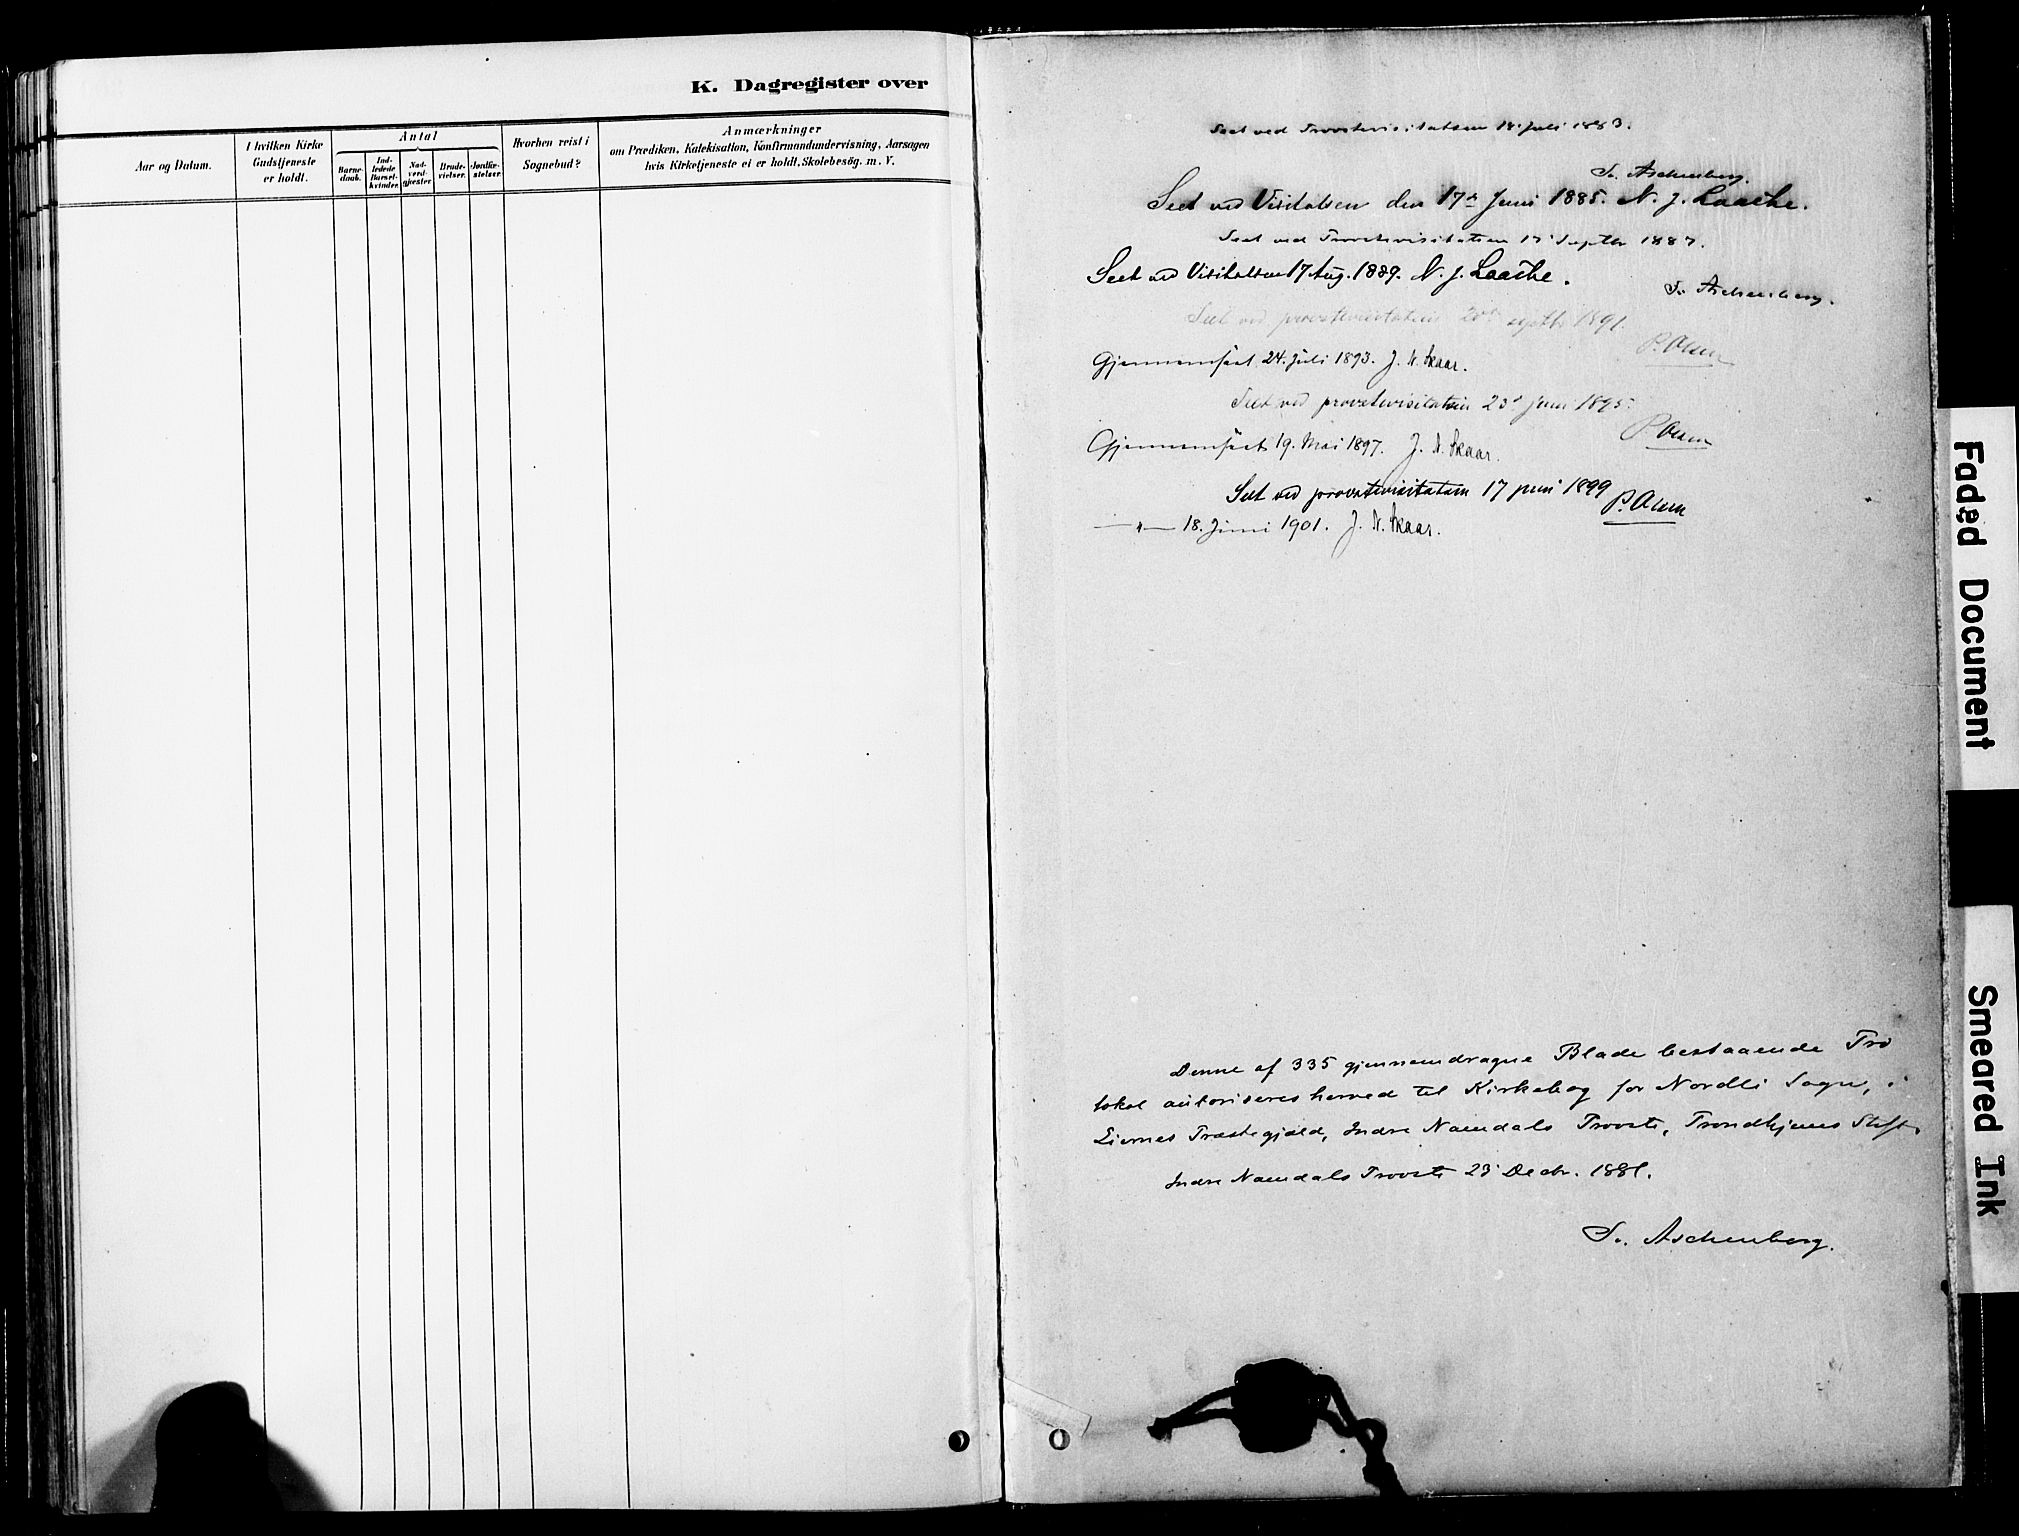 K. Dagregister over
Aar og Datum.
I hvilken Kirke
Gudstjeneste
er holdt.
Antal
Barne-
daab.
Ind-
ledede
Barsel-
kvinder.
Nad-
verd-
gjæster
Brude-
vielser.
Jordfæ-
stelser.
Hvorhen reist i
Sognebud?
Anmærkninger
om Prædiken, Katekisation, Konfirmandundervisning, Aarsagen
hvis Kirketjeneste ei er holdt, Skolebesög. m. V.
Seet ved Provstevisitatsen 18. Juli 1883.
S. Aschenberg.
Seet ved Visitatsen den 17de Juni 1885. N. J. Laache.
Seet ved Provstevisitatsen 17 Septbr 1887.
Seet ved Visitatsen 17 Aug. 1889. N. J. Laache.
S. Aschenberg.
Seet ved provstevisitatsen septbr 1891.
P. Olsen
Gjennemseet 24. Juli 1893. J. N. Skaar.
Seet ved provstevisitatsen 23d juni 1895.
P. Olsen
Gjennemseet 19. Mai 1897. J. N. Skaar.
Seet ved provstevisitatsen 17 juni 1899
P. Olsen
—"— 18. Juni 1901. J. N. Skaar.
Denne af 335 gjennemdragne Blade bestaaende Pro
tokol autoriseres herved til Kirkebog for Nordli Sogn, i
Liernes Præstegjæld, Indre Namdals Provsti, Trondhjems Stift.
Indre Namdals Provsti 23 Decbr. 1881.
S. Aschenberg.
Faded Document
Smeared Ink